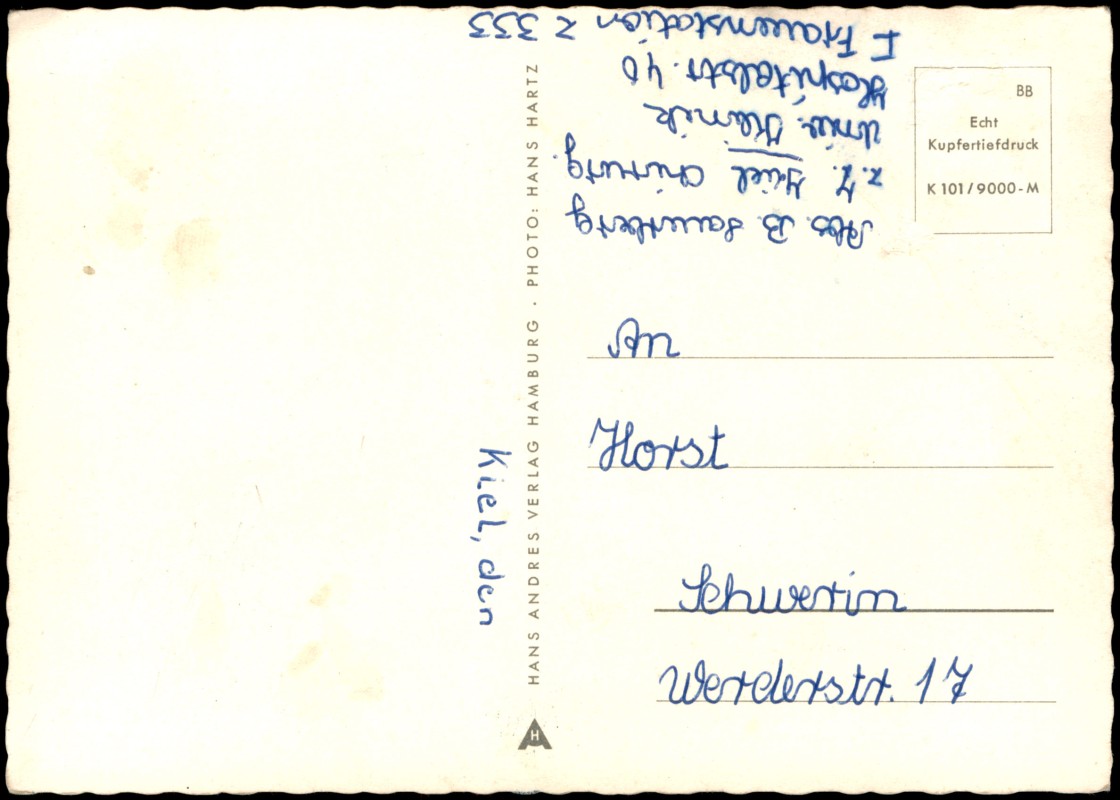 Abs. B. Sauerberg
z. Z. Kiel Chirurg.
Univ. Klinik
Hospitalstr. 40
I Frauenstation Z 333
BB
Echt
Kupfertiefdruck
K 101/9000-M
HANS ANDRES VERLAG HAMBURG · PHOTO: HANS HARTZ
H
Kiel, den
An
Horst
Schwerin
Werderstr. 17